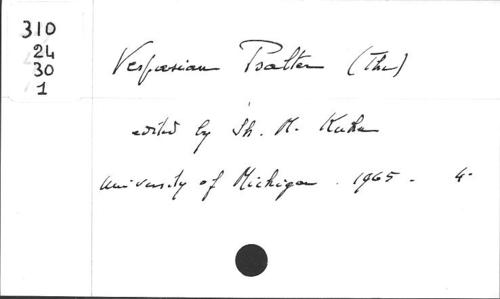 310
24
30
1
Vespasian Psalter (The)
edited by Sh. M. Kuhn
University of Michigan. 1965 - 4°